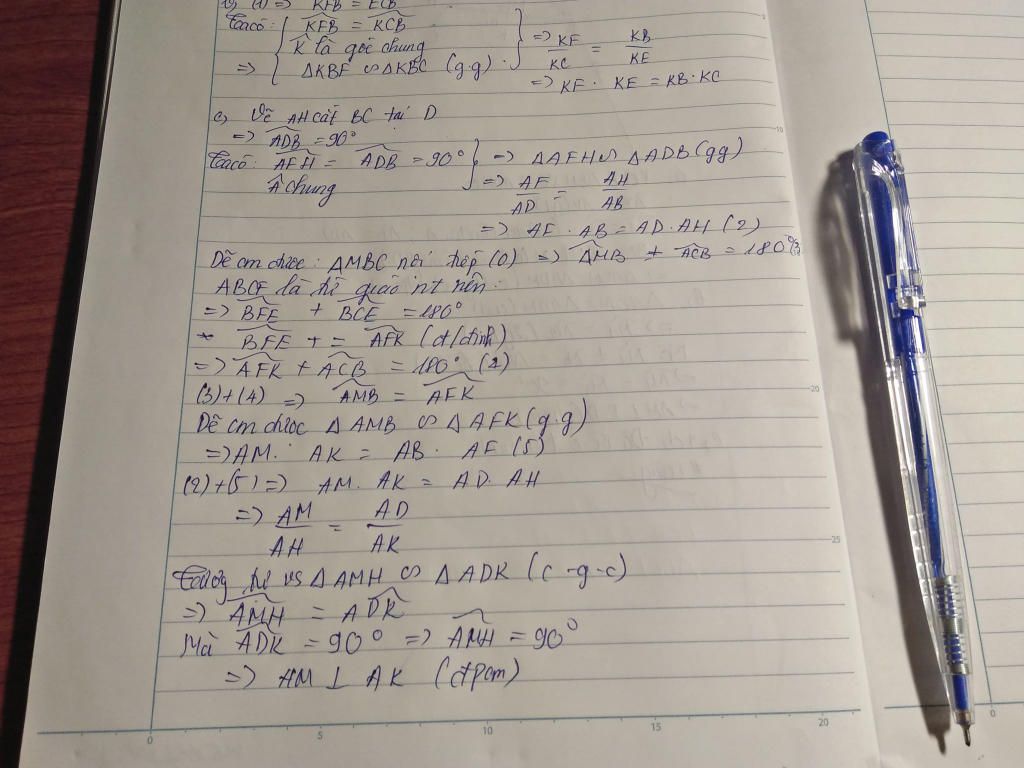 => KFB = ECB
Ta có: { KFB = KCB
K là góc chung
=> ΔKBF ∽ ΔKBC (g.g) } => KF/KC = KB/KE
=> KF. KE = KB.KC
c, Vẽ AH cắt BC tại D
=> ADB = 90°
Ta có: AFH = ADB = 90°
 chung } => ΔAFH ∽ ΔADB (gg)
=> AF/AD = AH/AB
=> AF. AB = AD.AH (2)
Dễ cm được: ΔMBC nội tiếp (O) => AMB + ACB = 180° (3)
ABCF là tứ giác nt nên
=> BFE + BCE = 180°
BFE + = AFK (đ/đỉnh)
=> AFK + ACB = 180° (4)
(3)+(4) => AMB = AFK
Dễ cm được Δ AMB ∽ Δ AFK (g.g)
=> AM. AK = AB. AF (5)
(2)+(5) => AM. AK = AD. AH
=> AM/AH = AD/AK
Tương tự vs Δ AMH ∽ Δ ADK (c-g-c)
=> AMH = ADK
Mà ADK = 90° => AMH = 90°
=> AM ⊥ AK (đpcm)
10
20
25
0 5 10 15 20
0